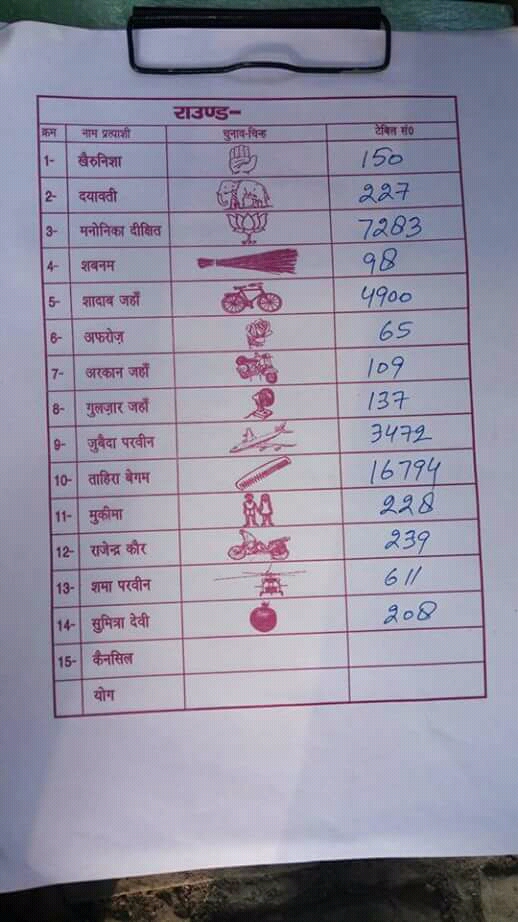 राउण्ड-
क्रम नाम प्रत्याशी चुनाव-चिन्ह टेबिल सं०
1- खैरुनिशा 150
2- दयावती 227
3- मनोनिका दीक्षित 7283
4- शबनम 98
5- शादाब जहाँ 4900
6- अफरोज़ 65
7- अरकान जहाँ 109
8- गुलज़ार जहाँ 137
9- जुबैदा परवीन 3472
10- ताहिरा बेगम 16794
11- मुकीमा 228
12- राजेन्द्र कौर 239
13- शमा परवीन 611
14- सुमित्रा देवी 208
15- कैनसिल
योग